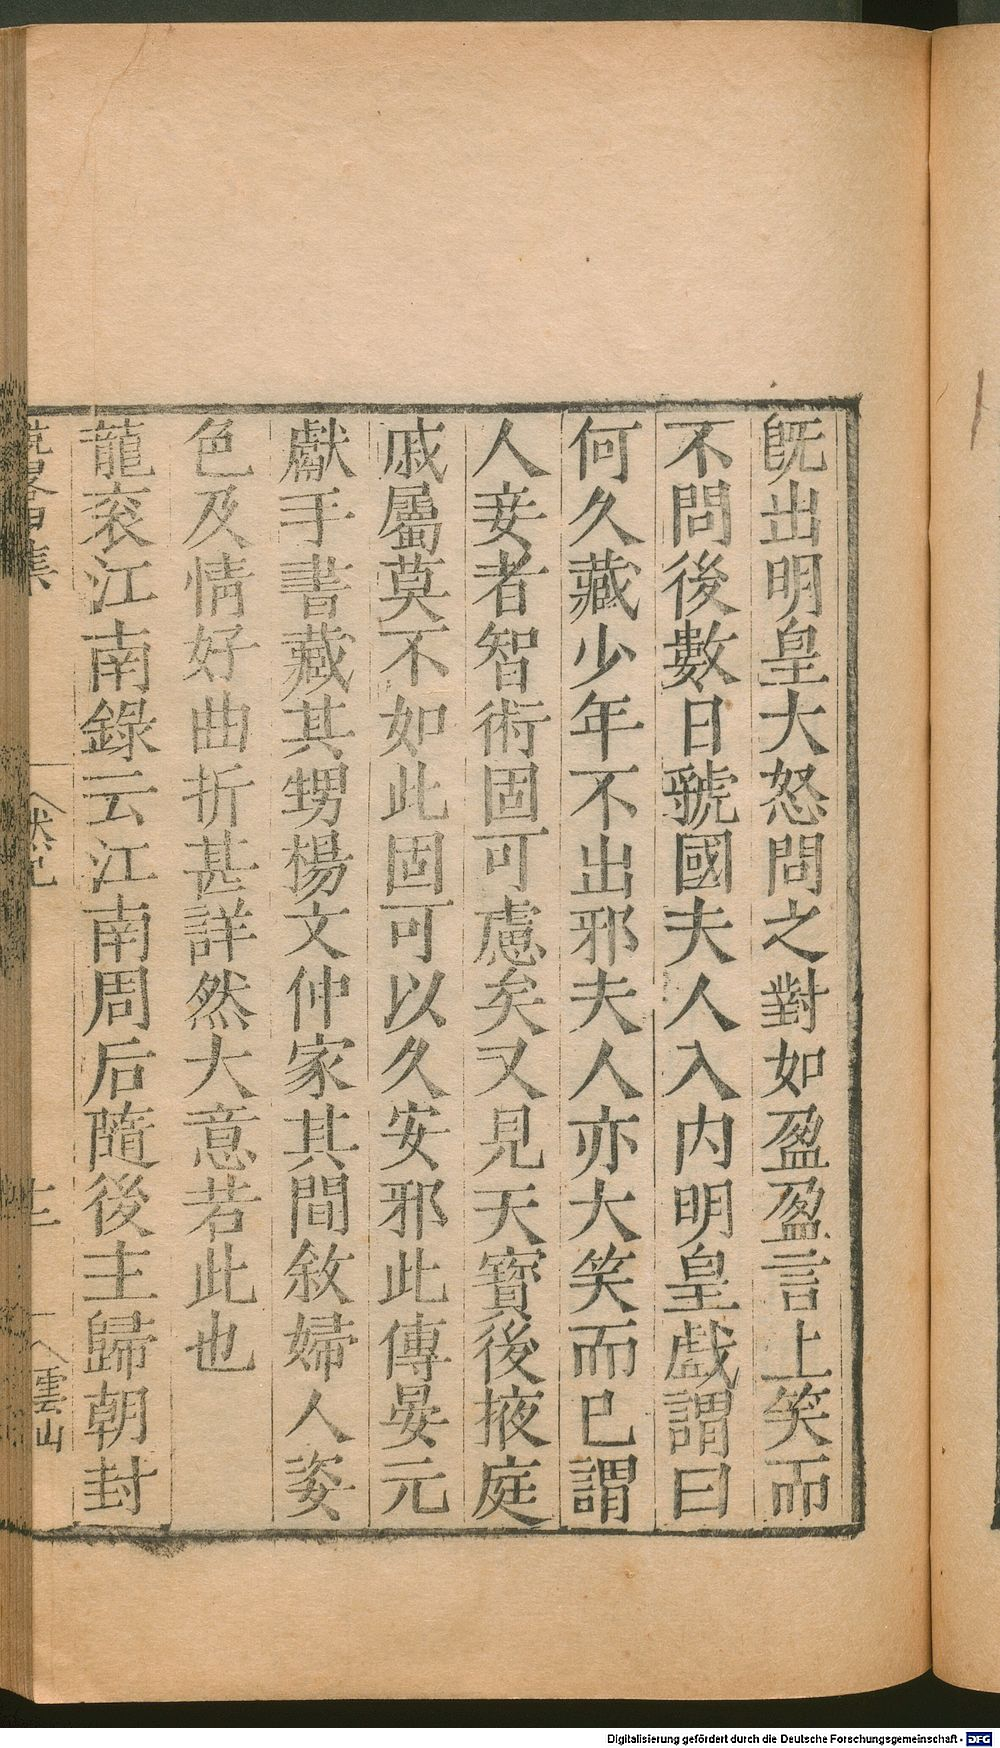 旣出明皇大怒問之對如盈盈言上笑而
不問後數日虢國夫人入内明皇戲謂曰
何久藏少年不出邪夫人亦大笑而已謂
人妾者智術固可慮矣又見天寳後掖庭
戚屬莫不如此固可以久安邪此傳晏元
獻手書藏其甥楊文仲家其間敘婦人姿
色及情好曲折甚詳然大意若此也
龍衮江南錄云江南周后隨後主歸朝封
雲山
Digitalisierung gefördert durch die Deutsche Forschungsgemeinschaft - DFG